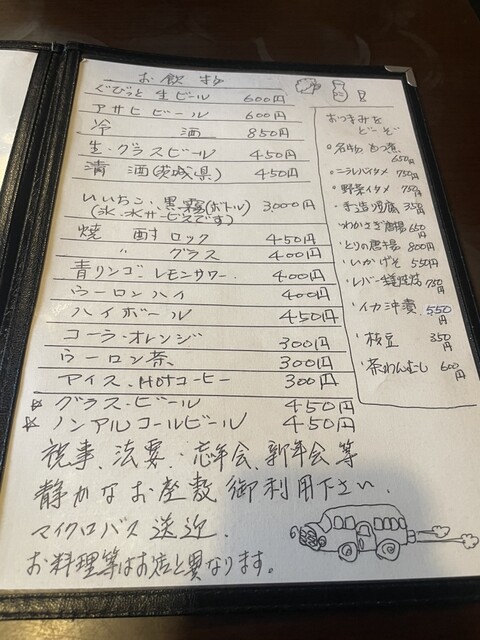 お飲物
ぐびっと生ビール 600円
アサヒビール 600円
冷酒 850円
生・グラスビール 450円
清酒(茨城県) 450円
いいちこ、黒霧(ボトル) 3,000円
(氷、水サービスです)
焼酎ロック 450円
〃 グラス 400円
青リンゴ レモンサワー. 400円
ウーロンハイ 400円
ハイボール 450円
コーラ・オレンジ 300円
ウーロン茶 300円
アイス、Hotコーヒー 300円
☆ グラス・ビール 450円
☆ ノンアルコールビール 450円
祝事、法要・忘年会、新年会等
静かなお座敷御利用下さい.
マイクロバス送迎.
お料理等はお店と異なります。
おつまみを
どーぞ
名物もつ煮 650円
ニラレバイタメ 750円
野菜イタメ 750円
手造り豆腐 350円
わかさぎ唐揚 650円
とりの唐揚 800円
いかげそ 550円
レバー 750円
イカ沖漬 550円
枝豆 350円
茶わんむし 600円